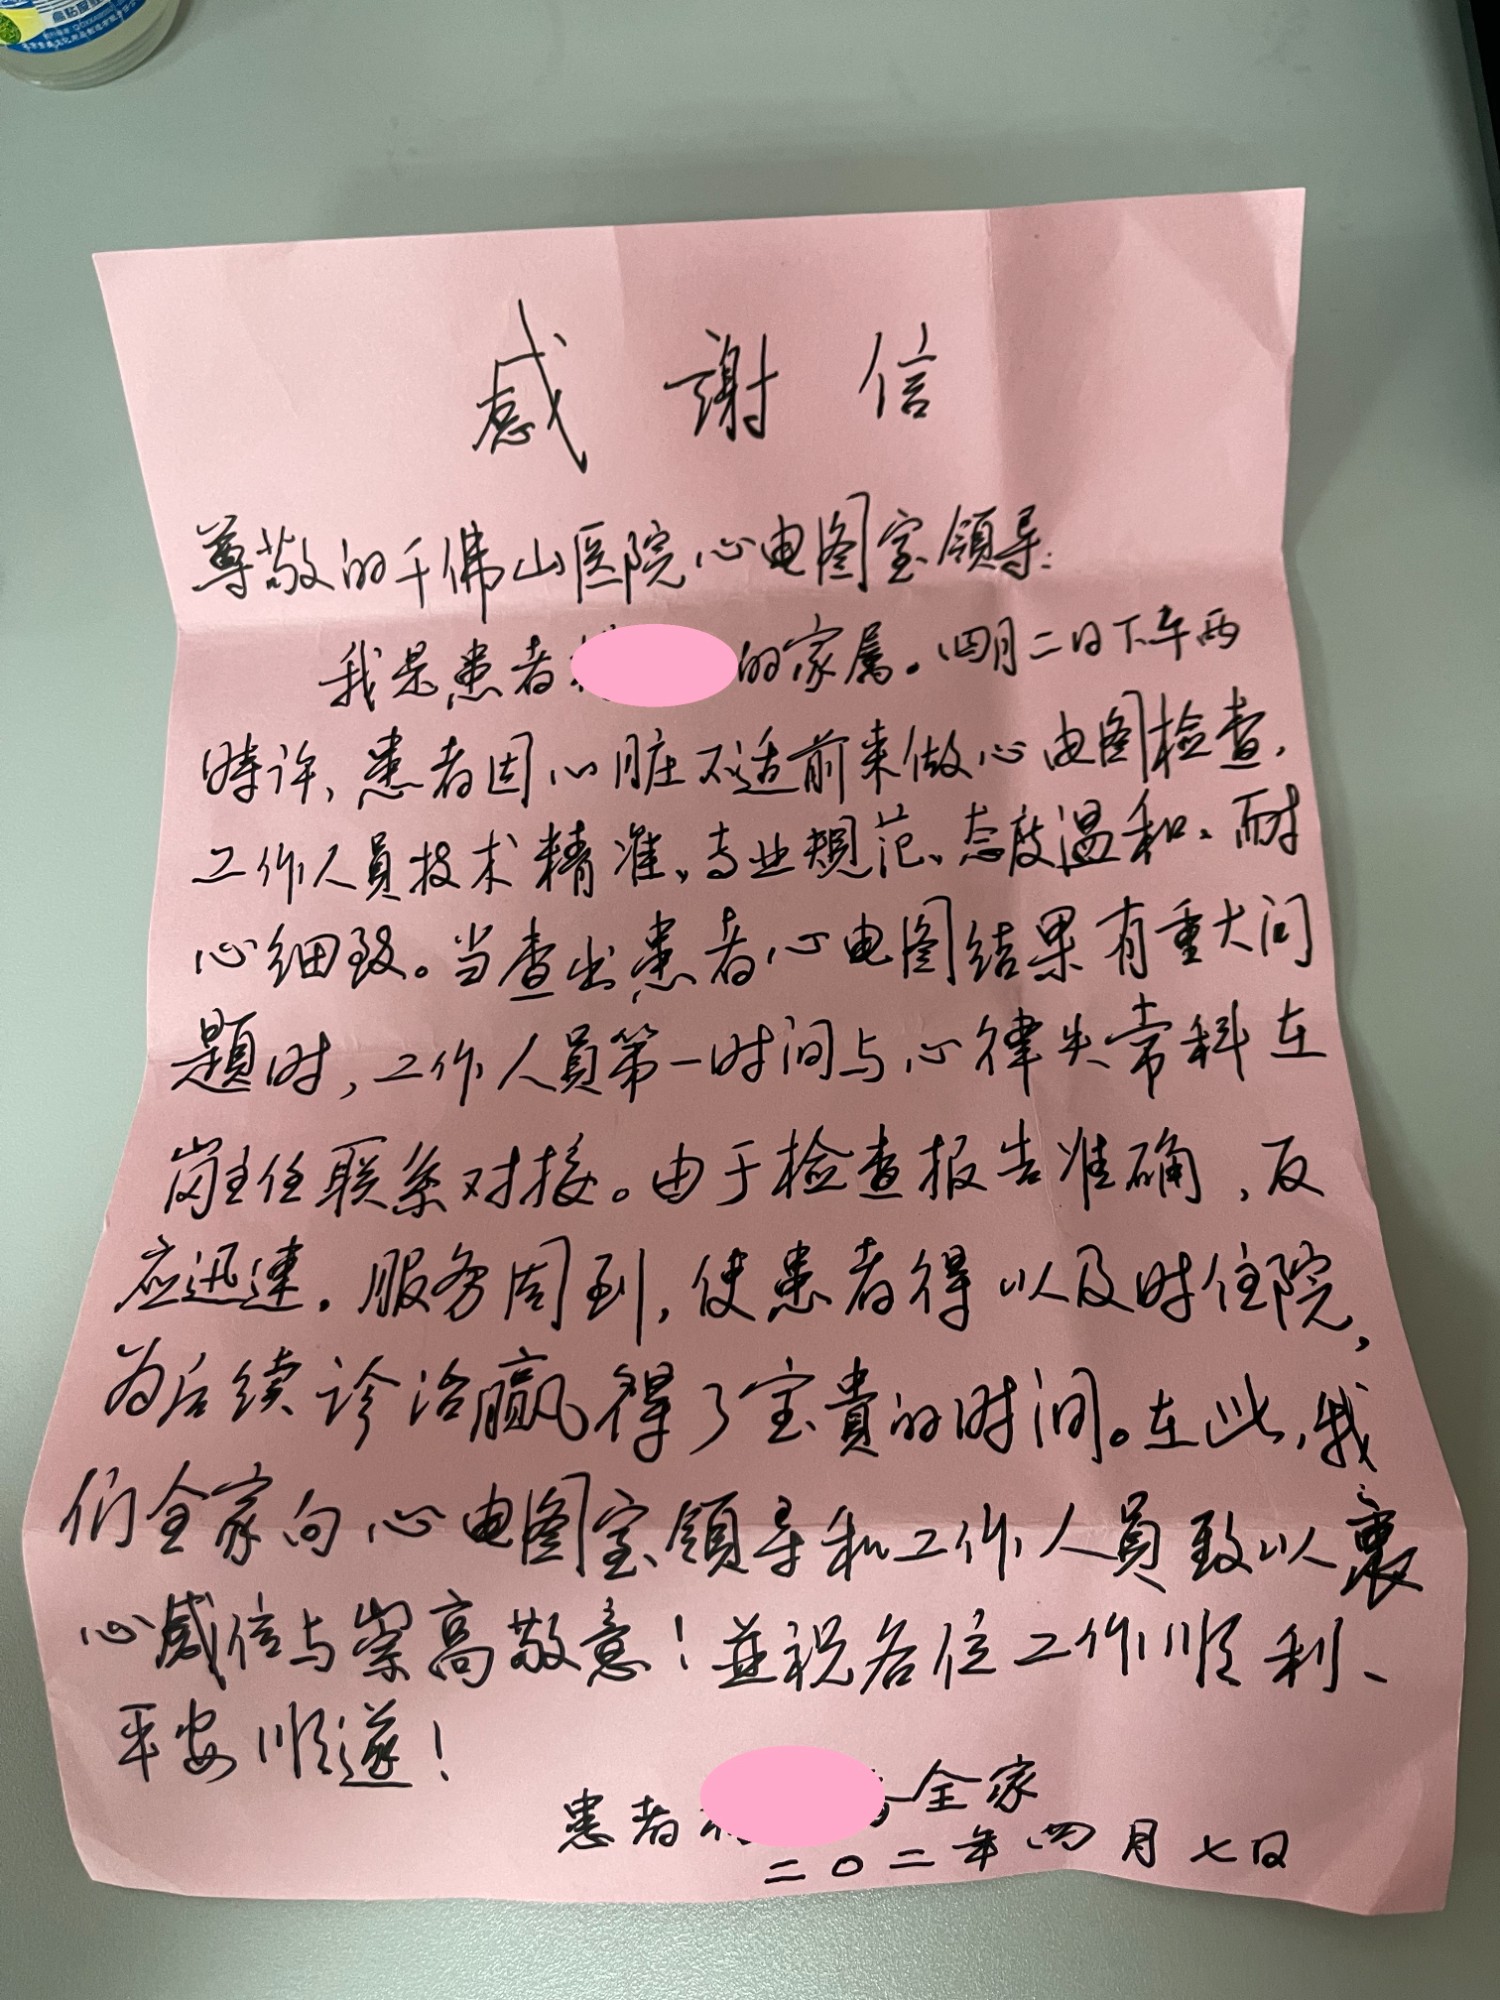 感謝信
尊敬的千佛山医院心电图室領导:
我是患者 的家属。四月二日下午两
时许,患者因心脏不适前来做心电图检查,
工作人員技术精准、专业規范、态度温和、耐
心细致。当查出患者心电图结果有重大问
题时,工作人員第一时间与心律失常科在
岗主任联系对接。由于检查报告准确,反
应迅速,服务周到,使患者得以及时住院,
为后续诊治赢得了宝貴的时间。在此,我
们全家向心电图室領导和工作人員致以衷
心感信与崇高敬意!並祝各位工作順利、
平安順遂!
患者 全家
二〇二年四月七日